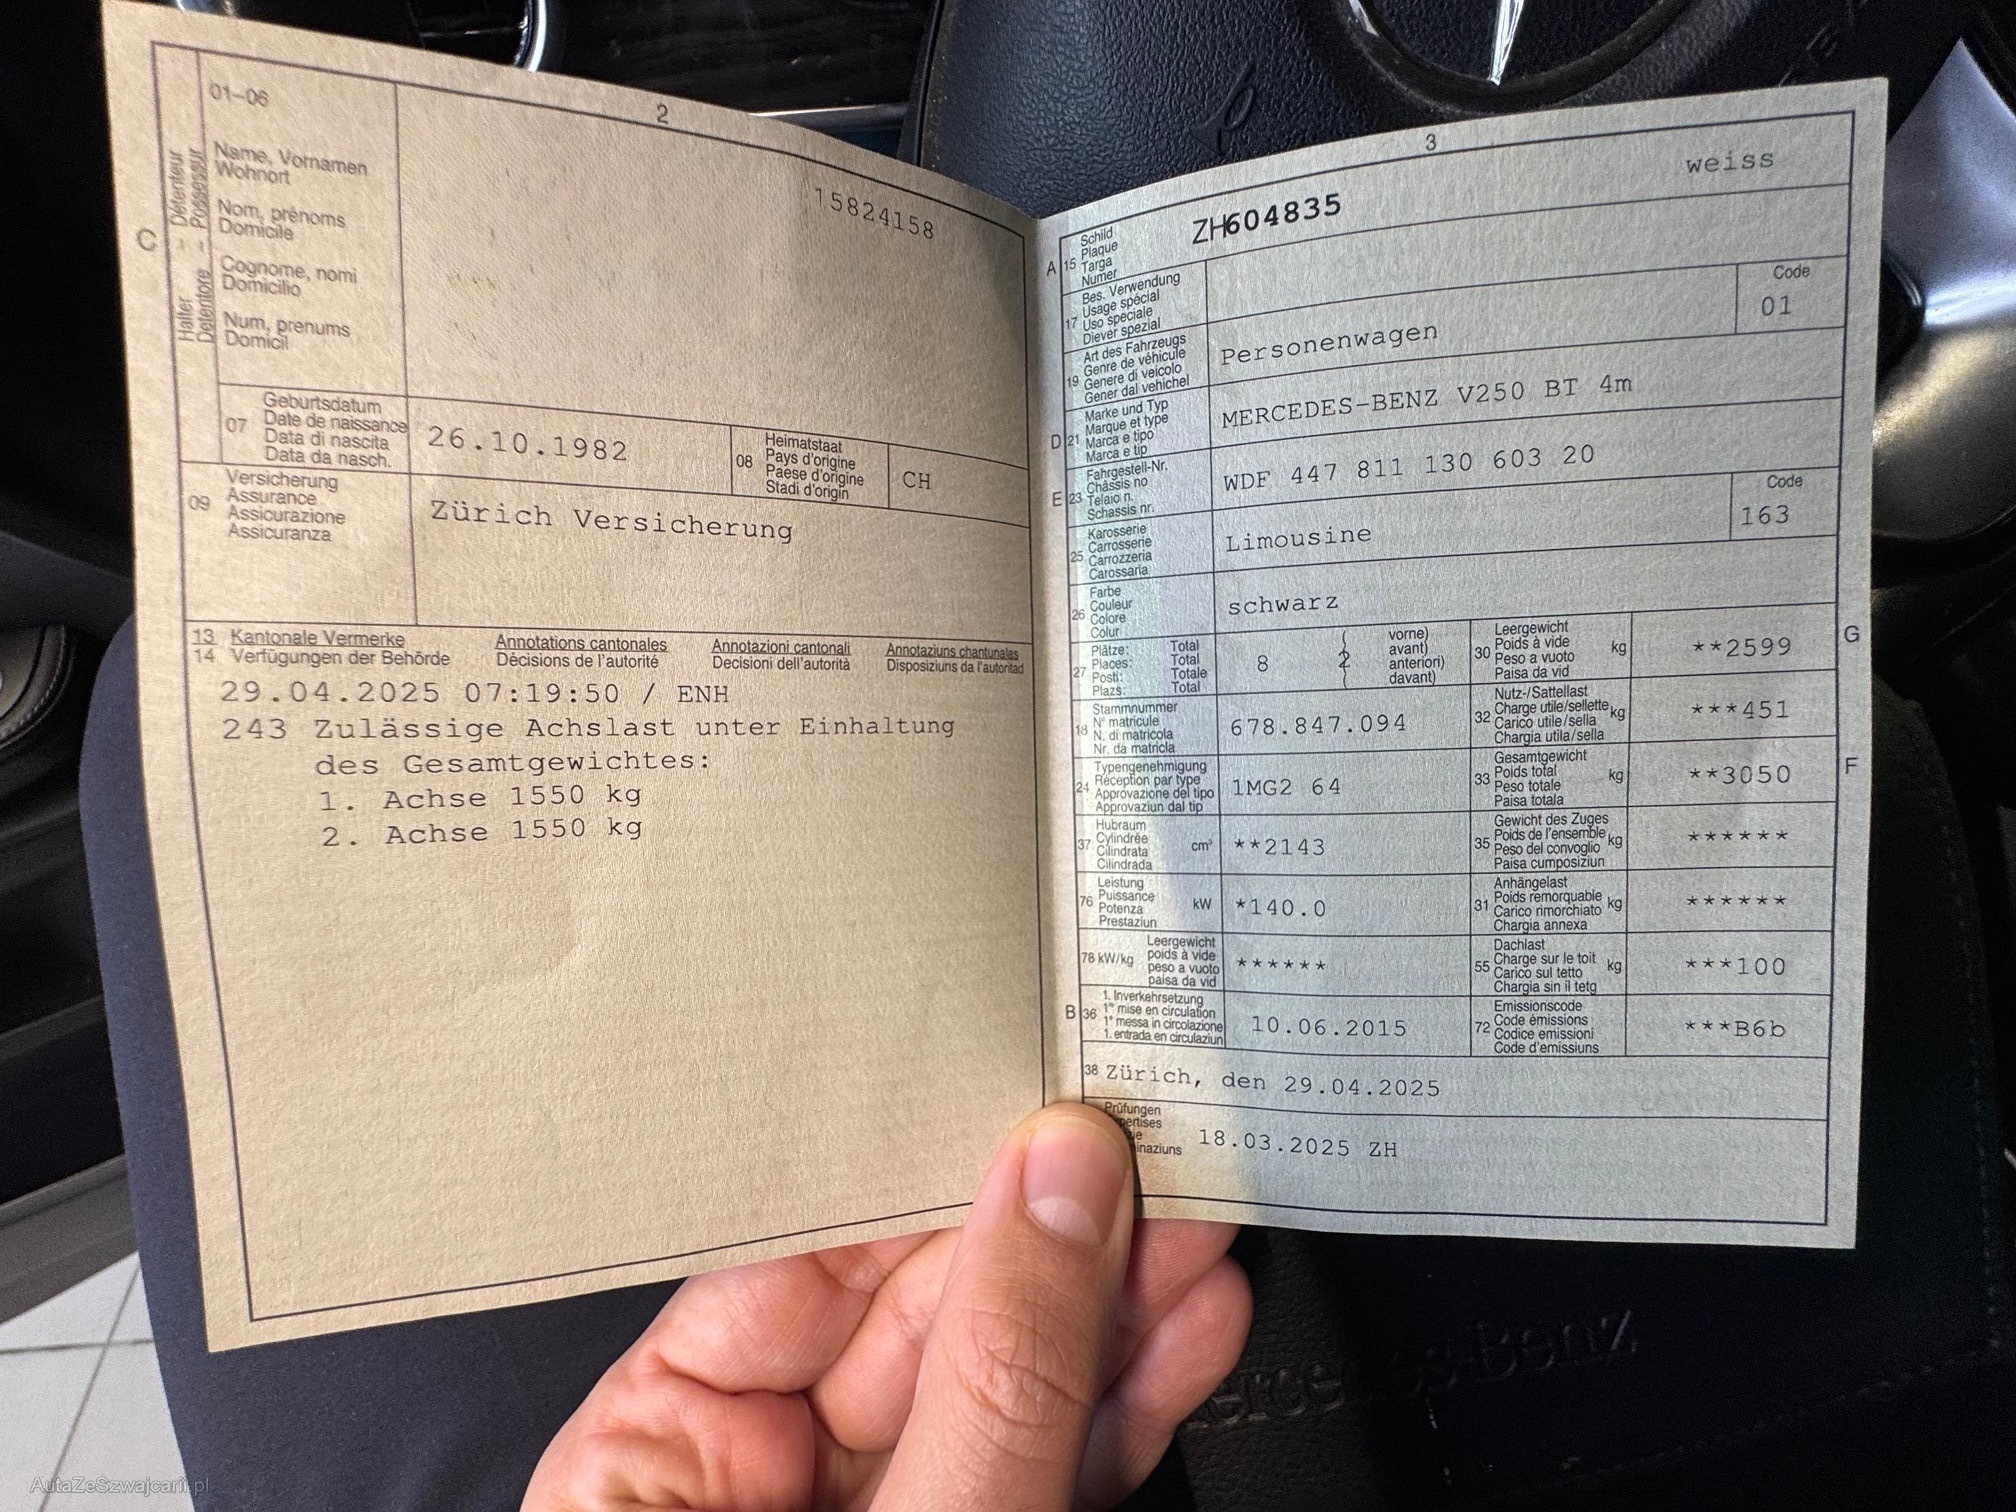 2
01-06
Name, Vornamen
Wohnort
Nom, prénoms
Domicile
Cognome, nomi
Domicilio
Num, prenums
Domicil
C
Halter - Détenteur
Detentore - Possessur
15824158
07
Geburtsdatum
Date de naissance
Data di nascita
Data da nasch.
26.10.1982
08
Heimatstaat
Pays d'origine
Paese d'origine
Stadi d'origin
CH
09
Versicherung
Assurance
Assicurazione
Assicuranza
Zürich Versicherung
13 Kantonale Vermerke Annotations cantonales Annotazioni cantonali Annotaziuns chantunalas
14 Verfügungen der Behörde Décisions de l'autorité Decisioni dell'autorità Disposiziuns da l'autoritad
29.04.2025 07:19:50 / ENH
243 Zulässige Achslast unter Einhaltung
des Gesamtgewichtes:
1. Achse 1550 kg
2. Achse 1550 kg
3
weiss
A 15
Schild
Plaque
Targa
Numer
ZH604835
17
Bes. Verwendung
Usage spécial
Uso speciale
Diever spezial
19
Art des Fahrzeugs
Genre de véhicule
Genere di veicolo
Gener dal vehichel
Personenwagen
Code
01
D 21
Marke und Typ
Marque et type
Marca e tipo
Marca e tip
MERCEDES-BENZ V250 BT 4m
E 23
Fahrgestell-Nr.
Châssis no
Telaio n.
Schassis nr.
WDF 447 811 130 603 20
25
Karosserie
Carrosserie
Carrozzeria
Carossaria
Limousine
Code
163
26
Farbe
Couleur
Colore
Colur
schwarz
27
Plätze: Total
Places: Total
Posti: Totale
Plazs: Total
8
2
vorne)
avant)
anteriori)
davant)
30
Leergewicht
Poids à vide
Peso a vuoto
Paisa da vid
kg
**2599
G
18
Stammnummer
N° matricule
N. di matricola
Nr. da matricla
678.847.094
32
Nutz-/Sattellast
Charge utile/sellette
Carico utile/sella
Chargia utila/sella
kg
***451
24
Typengenehmigung
Réception par type
Approvazione del tipo
Approvaziun dal tip
1MG2 64
33
Gesamtgewicht
Poids total
Peso totale
Paisa totala
kg
**3050
F
37
Hubraum
Cylindrée
Cilindrata
Cilindrada
cm³
**2143
35
Gewicht des Zuges
Poids de l'ensemble
Peso del convoglio
Paisa cumposiziun
kg
******
76
Leistung
Puissance
Potenza
Prestaziun
kW
*140.0
31
Anhängelast
Poids remorquable
Carico rimorchiato
Chargia annexa
kg
******
78 kW/kg
Leergewicht
poids à vide
peso a vuoto
paisa da vid
******
55
Dachlast
Charge sur le toit
Carico sul tetto
Chargia sin il tetg
kg
***100
B 36
1. Inverkehrsetzung
1re mise en circulation
1a messa in circolazione
1. entrada en circulaziun
10.06.2015
72
Emissionscode
Code émissions
Codice emissioni
Code d'emissiuns
***B6b
38 Zürich, den 29.04.2025
Prüfungen
18.03.2025 ZH
Mercedes-Benz
AutaZeSzwajcarii.pl